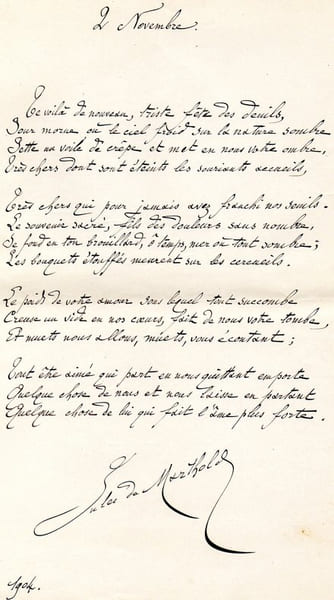 2 Novembre.
Te voilà de nouveau, triste fête des deuils,
Jour morne où le ciel froid sur la nature sombre
Jette un voile de crêpe et met en nous votre ombre,
Très chers dont sont éteints les souriants accueils,
Très chers qui pour jamais avez franchi nos seuils.
Le souvenir sacré, fils des douleurs sans nombre,
Se fond en ton brouillard, ô temps, mer où tout sombre;
Les bouquets étouffés meurent sur les cercueils.
Le poids de votre amour sous lequel tout succombe
Creuse un vide en nos cœurs, fait de nous votre tombe,
Et muets nous allons, muets, vous écoutant;
Tout être aimé qui part en nous quittant emporte
Quelque chose de nous et nous laisse en partant
Quelque chose de lui qui fait l'âme plus forte.
Jules de Marthold
1904.